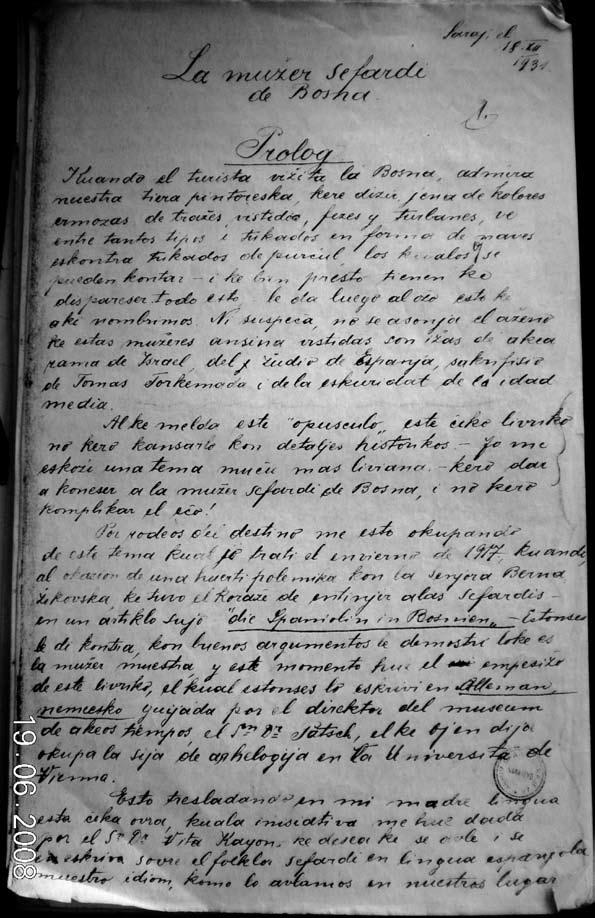 Saraj. el
18. XII
1931.
La mužer sefardi
de Bosna.
1.
Prolog
Kuando el turista vižita la Bosna, admira
nuestra tiera pintoreska, kere dizir, jena de kolores
ermozas de tražes, vistidos, fezes y turbanes, ve
entre tantos tipos i tukados en forma de naves
eskontra tukados de purcul, los kualos se
pueden kontar - i ke bien presto tienen ke
dispareser todo esto, le da luego al ožo esto ke
aki nombrimos. Ni suspeča, no se asonja el aženo
ke estas mužeres ansina vistidas son ižas de akea
rama de Israel, del žudio de Espanja, sakrifisio
de Tomas Torkemada i de la eskuridat de la idad
media.
Al ke melda este "opusculo", este čiko livriko
no kero kansarlo kon detaljes historikos. - Jo me
eskoži una tema muču mas liviana. - kero dar
a koneser a la mužer sefardi de Bosna, i no kero
komplikar el ečo!
Por rodeos del destino me esto okupando
de este tema kual jo trati el envierno de 1917, kuando,
al okazion de una huarti polemika kon la senjora Berna
Žikovska, ke tuvo el koraže de entinjer a las Sefardis -
en un artiklo sujo "die Spaniolin in Bosnien" - Estonses
le di kontra, kon buenos argumentos le demostri loke es
la mužer muestra, y este momento hue el empesižo
de este livriko, el kual estonses lo eskrivi en Alleman,
nemcesko guijada por el direktor del museum
de akeos tiempos el Sr. Dr. Patsch, el ke oj en dija
okupa la sija de arhelogija en la Universita de
Vienna.
Esto tresladando en mi madre lingua
esta čika ovra, kuala inisiativa me hue dada
por el Sr. Dr. Vita Kajon, ke desea ke se avle i se
eskriva sovre el folklor sefardi en lingua espanjola
muestro idiom, komo lo avlamos en nuestros lugar
19.06.2008